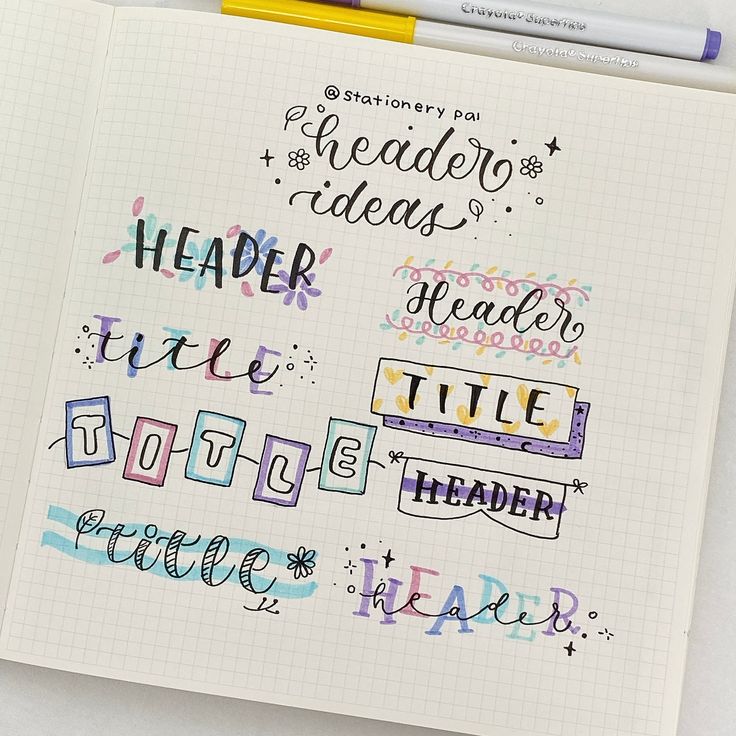 Crayola® SuperTips
Crayola® SuperTips
@stationery pal
header
ideas
HEADER
Header
TITLE
title
TITLE
TITLE
HEADER
title
HEADER
header